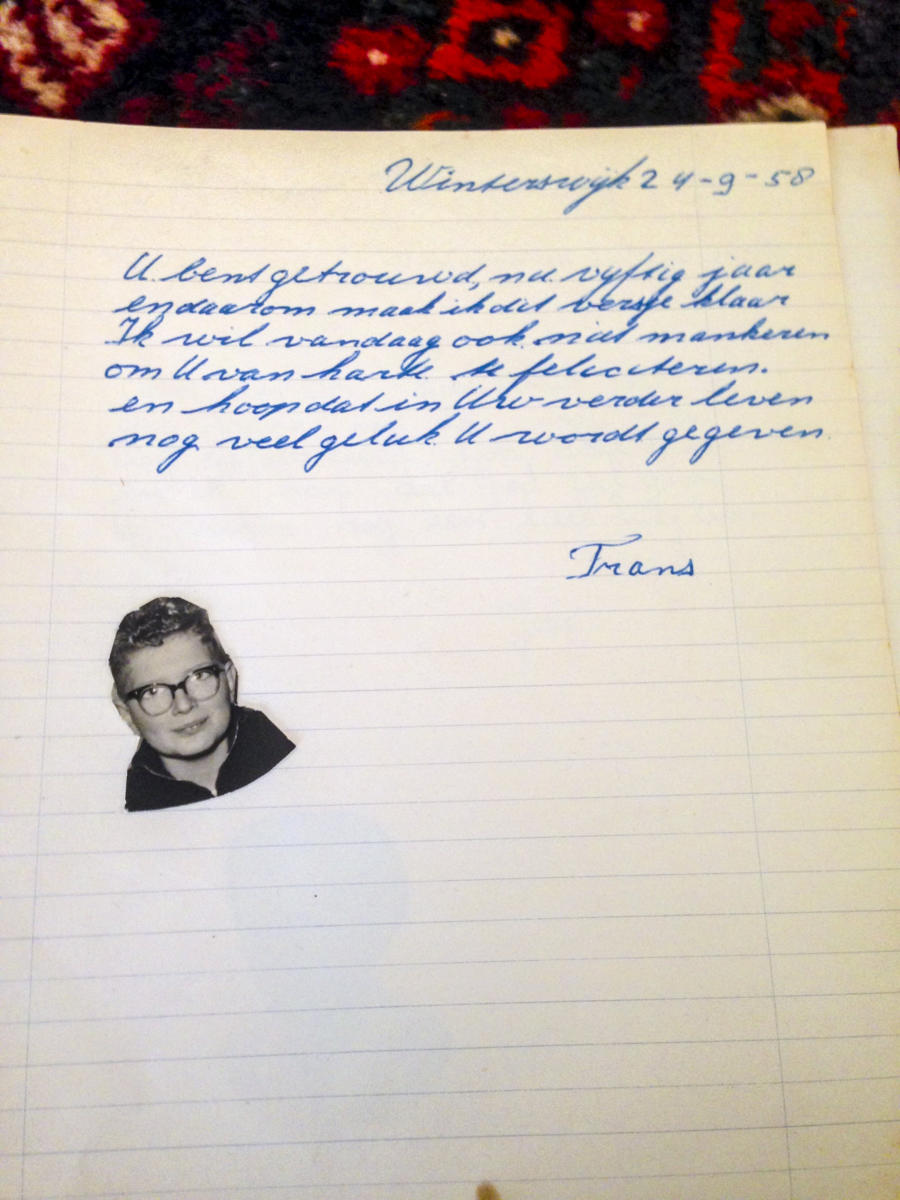 Winterswijk 24-9-58
U bent getrouwd, nu vijftig jaar
en daarom maak ik dit versje klaar
Ik wil vandaag ook niet mankeren
om U van harte te feliciteren.
en hoop dat in Uw verder leven
nog veel geluk U wordt gegeven.
Frans